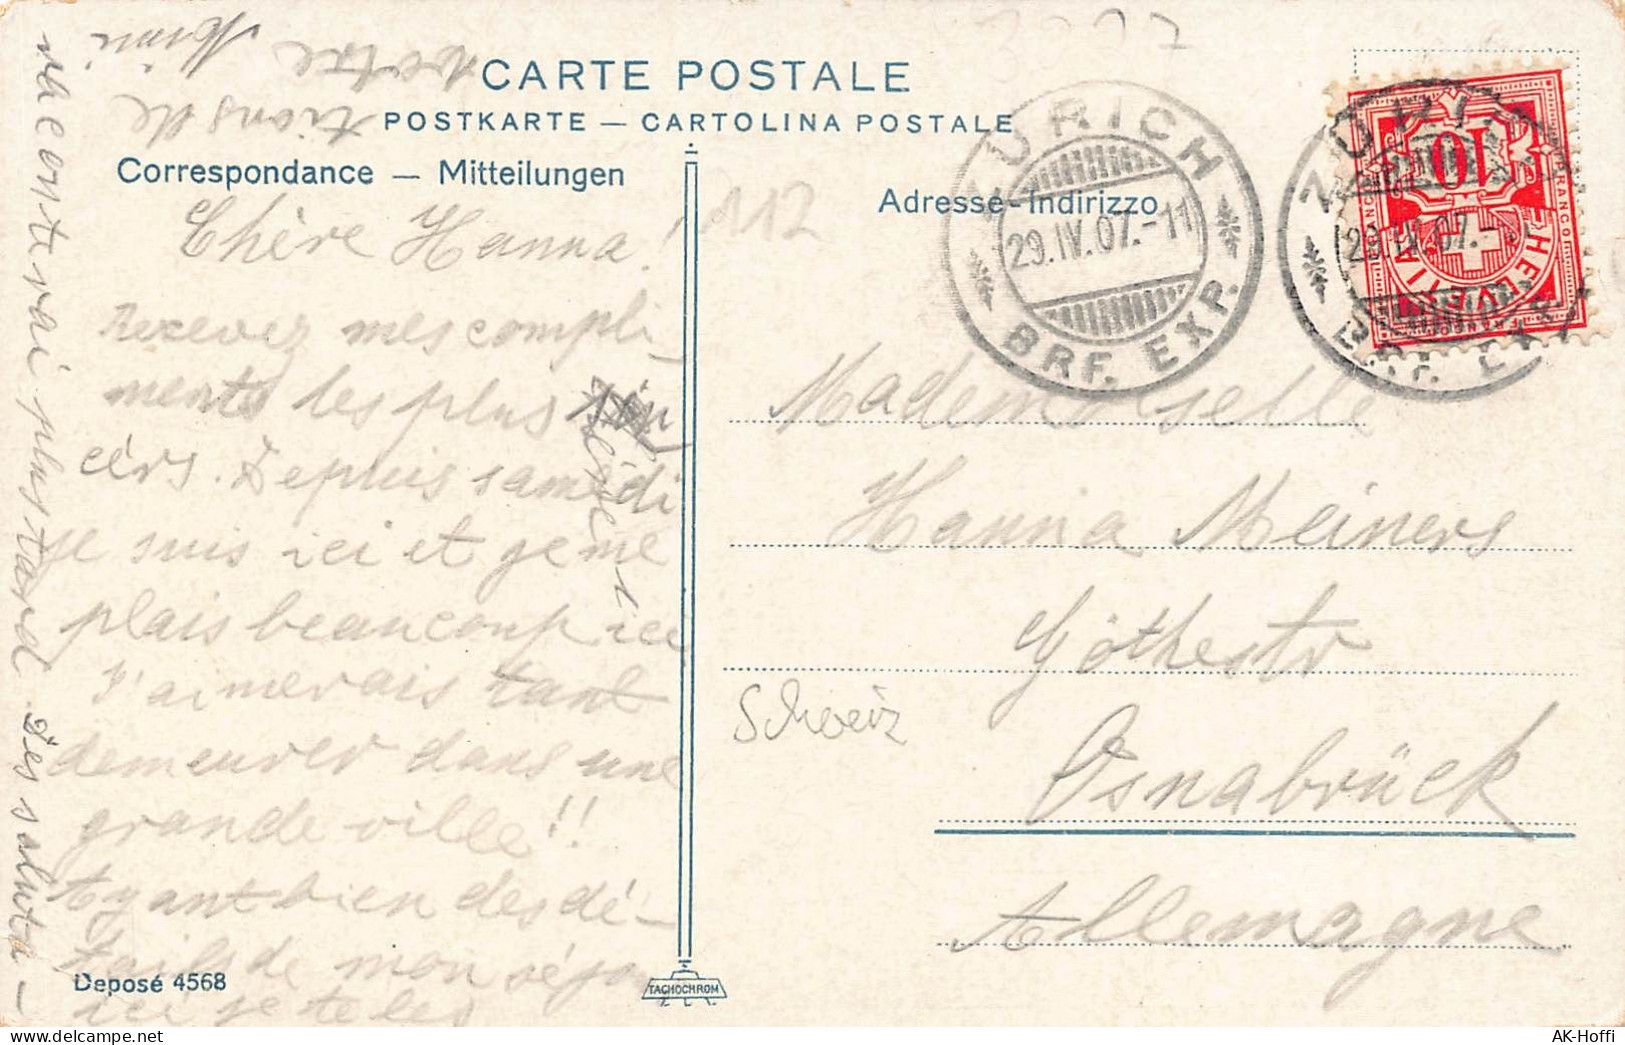 CARTE POSTALE
POSTKARTE — CARTOLINA POSTALE
Correspondance — Mitteilungen
Adresse-Indirizzo
Chère Hanna!
Recevez mes compli-
ments les plus sin
cérs. Depuis samedi
je suis ici et je me
plais beaucoup ici
J'aimerais tant
demeurer dans une
grande ville!!
Ayant bien des dé-
tails de mon séjour
ici je te les
raconterai plus tard Des saluta-
tions de
votre Mimi
112
ZÜRICH
29.IV.07.-11
BRF. EXP.
ZÜRICH
29.IV.07.-
BRF. EXP.
10
HELVETIA
FRANCO
Mademoiselle
Hanna Meiners
Göthestr
Schweiz
Osnabrück
Allemagne
Deposé 4568
TACHOCHROM
AK-Hoffi